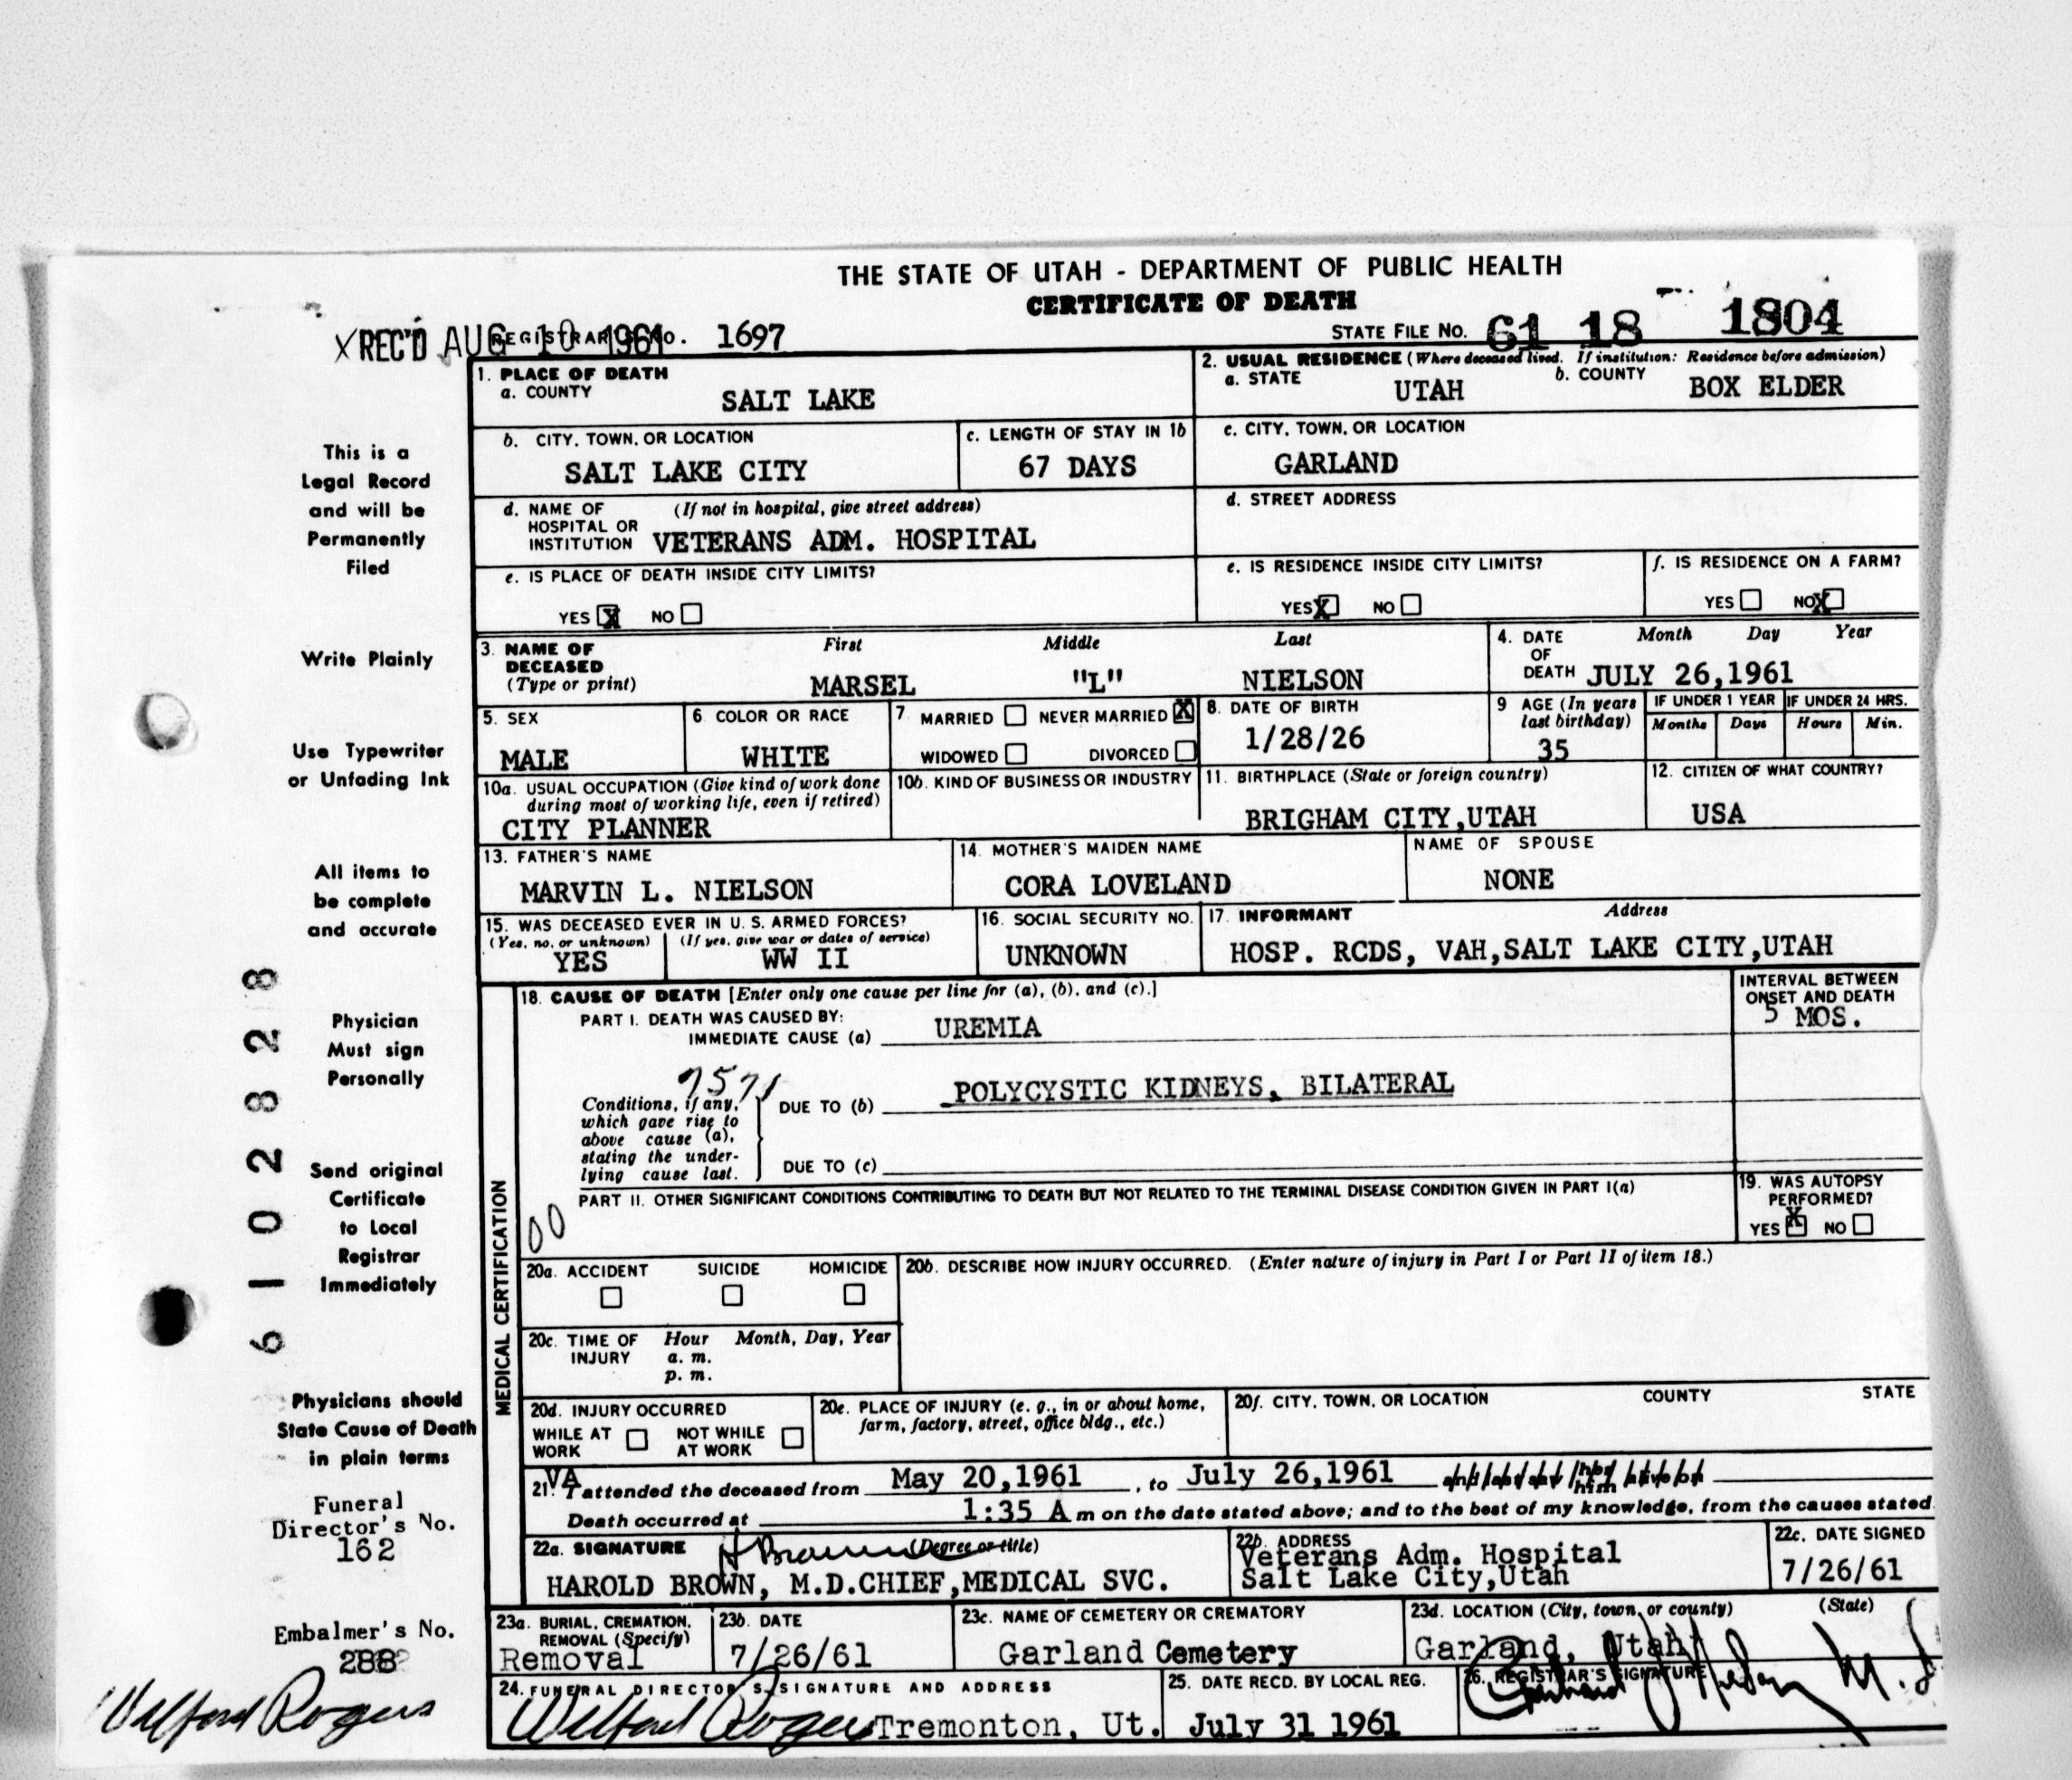 THE STATE OF UTAH - DEPARTMENT OF PUBLIC HEALTH
CERTIFICATE OF DEATH
X REC'D AUG 10 1961 REGISTRAR'S NO. 1697
STATE FILE No. 61 18 1804
1. PLACE OF DEATH
a. COUNTY
SALT LAKE
2. USUAL RESIDENCE (Where deceased lived. If institution: Residence before admission)
a. STATE UTAH b. COUNTY BOX ELDER
b. CITY, TOWN, OR LOCATION
SALT LAKE CITY
c. LENGTH OF STAY IN 1b
67 DAYS
c. CITY, TOWN, OR LOCATION
GARLAND
d. NAME OF (If not in hospital, give street address)
HOSPITAL OR
INSTITUTION VETERANS ADM. HOSPITAL
d. STREET ADDRESS
e. IS PLACE OF DEATH INSIDE CITY LIMITS?
YES X NO
e. IS RESIDENCE INSIDE CITY LIMITS?
YES X NO
f. IS RESIDENCE ON A FARM?
YES NO X
3. NAME OF DECEASED (Type or print)
First Middle Last
MARSEL "L" NIELSON
4. DATE OF DEATH Month Day Year
JULY 26,1961
5. SEX
MALE
6. COLOR OR RACE
WHITE
7. MARRIED NEVER MARRIED X
WIDOWED DIVORCED
8. DATE OF BIRTH
1/28/26
9 AGE (In years last birthday)
35
IF UNDER 1 YEAR IF UNDER 24 HRS.
Months Days Hours Min.
10a. USUAL OCCUPATION (Give kind of work done
during most of working life, even if retired)
CITY PLANNER
10b. KIND OF BUSINESS OR INDUSTRY
11. BIRTHPLACE (State or foreign country)
BRIGHAM CITY,UTAH
12. CITIZEN OF WHAT COUNTRY?
USA
13. FATHER'S NAME
MARVIN L. NIELSON
14. MOTHER'S MAIDEN NAME
CORA LOVELAND
NAME OF SPOUSE
NONE
15. WAS DECEASED EVER IN U. S. ARMED FORCES?
(Yes, no, or unknown) (If yes, give war or dates of service)
YES WW II
16. SOCIAL SECURITY NO.
UNKNOWN
17. INFORMANT Address
HOSP. RCDS, VAH,SALT LAKE CITY,UTAH
MEDICAL CERTIFICATION
18. CAUSE OF DEATH [Enter only one cause per line for (a), (b), and (c).]
PART I. DEATH WAS CAUSED BY:
IMMEDIATE CAUSE (a) UREMIA
INTERVAL BETWEEN
ONSET AND DEATH
5 MOS.
7571
Conditions, if any,
which gave rise to
above cause (a),
stating the under-
lying cause last.
DUE TO (b) POLYCYSTIC KIDNEYS, BILATERAL
DUE TO (c)
PART II. OTHER SIGNIFICANT CONDITIONS CONTRIBUTING TO DEATH BUT NOT RELATED TO THE TERMINAL DISEASE CONDITION GIVEN IN PART I(a)
00
19. WAS AUTOPSY
PERFORMED?
YES X NO
20a. ACCIDENT SUICIDE HOMICIDE
20b. DESCRIBE HOW INJURY OCCURRED. (Enter nature of injury in Part I or Part II of item 18.)
20c. TIME OF INJURY Hour Month, Day, Year
a. m.
p. m.
20d. INJURY OCCURRED
WHILE AT WORK NOT WHILE AT WORK
20e. PLACE OF INJURY (e. g., in or about home,
farm, factory, street, office bldg., etc.)
20f. CITY, TOWN, OR LOCATION COUNTY STATE
21. VA attended the deceased from May 20,1961, to July 26,1961
Death occurred at 1:35 A m on the date stated above; and to the best of my knowledge, from the causes stated
22a. SIGNATURE H Brown (Degree or title)
HAROLD BROWN, M.D.CHIEF,MEDICAL SVC.
22b. ADDRESS
Veterans Adm. Hospital
Salt Lake City,Utah
22c. DATE SIGNED
7/26/61
23a. BURIAL, CREMATION,
REMOVAL (Specify)
Removal
23b. DATE
7/26/61
23c. NAME OF CEMETERY OR CREMATORY
Garland Cemetery
23d. LOCATION (City, town, or county) (State)
Garland, Utah
24. FUNERAL DIRECTOR'S SIGNATURE AND ADDRESS
Wilford Rogers Tremonton, Ut.
25. DATE RECD. BY LOCAL REG.
July 31 1961
26. REGISTRAR'S SIGNATURE
This is a
Legal Record
and will be
Permanently
Filed
Write Plainly
Use Typewriter
or Unfading Ink
All items to
be complete
and accurate
Physician
Must sign
Personally
Send original
Certificate
to Local
Registrar
Immediately
Physicians should
State Cause of Death
in plain terms
Funeral
Director's No.
162
Embalmer's No.
288
Wilford Rogers
6102828